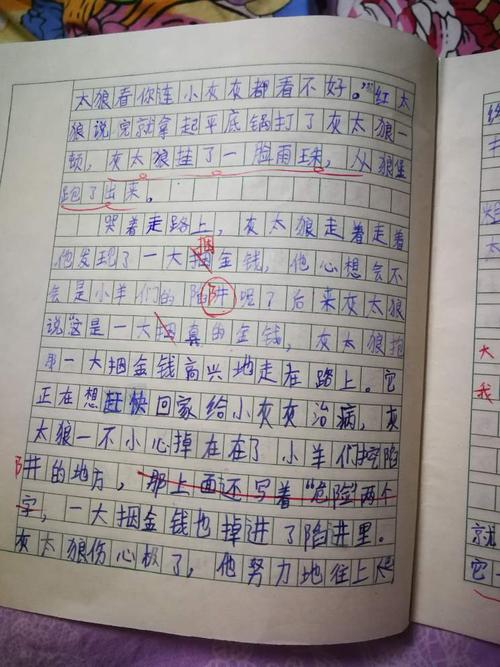 太狼看你连小灰灰都看不好。"红太
狼说完就拿起平底锅打了灰太狼一
顿，灰太狼挂了一脸雨珠，从狼堡
跑了出来。
哭着走路上，灰太狼走着走着
捆
他发现了一大捆金钱，他心想会不
会是小羊们的陷阱呢？后来灰太狼
说"这是一大捆真的金钱，灰太狼抱
那一大捆金钱高兴地走在路上。它
正在想赶快回家给小灰灰治病，灰
太狼一不小心掉在在了小羊们挖陷
阱的地方，那上面还写着"危险"两个
字，一大捆金钱也掉进了陷井里。
灰太狼伤心极了，他努力地往上爬
大
我
就
它一